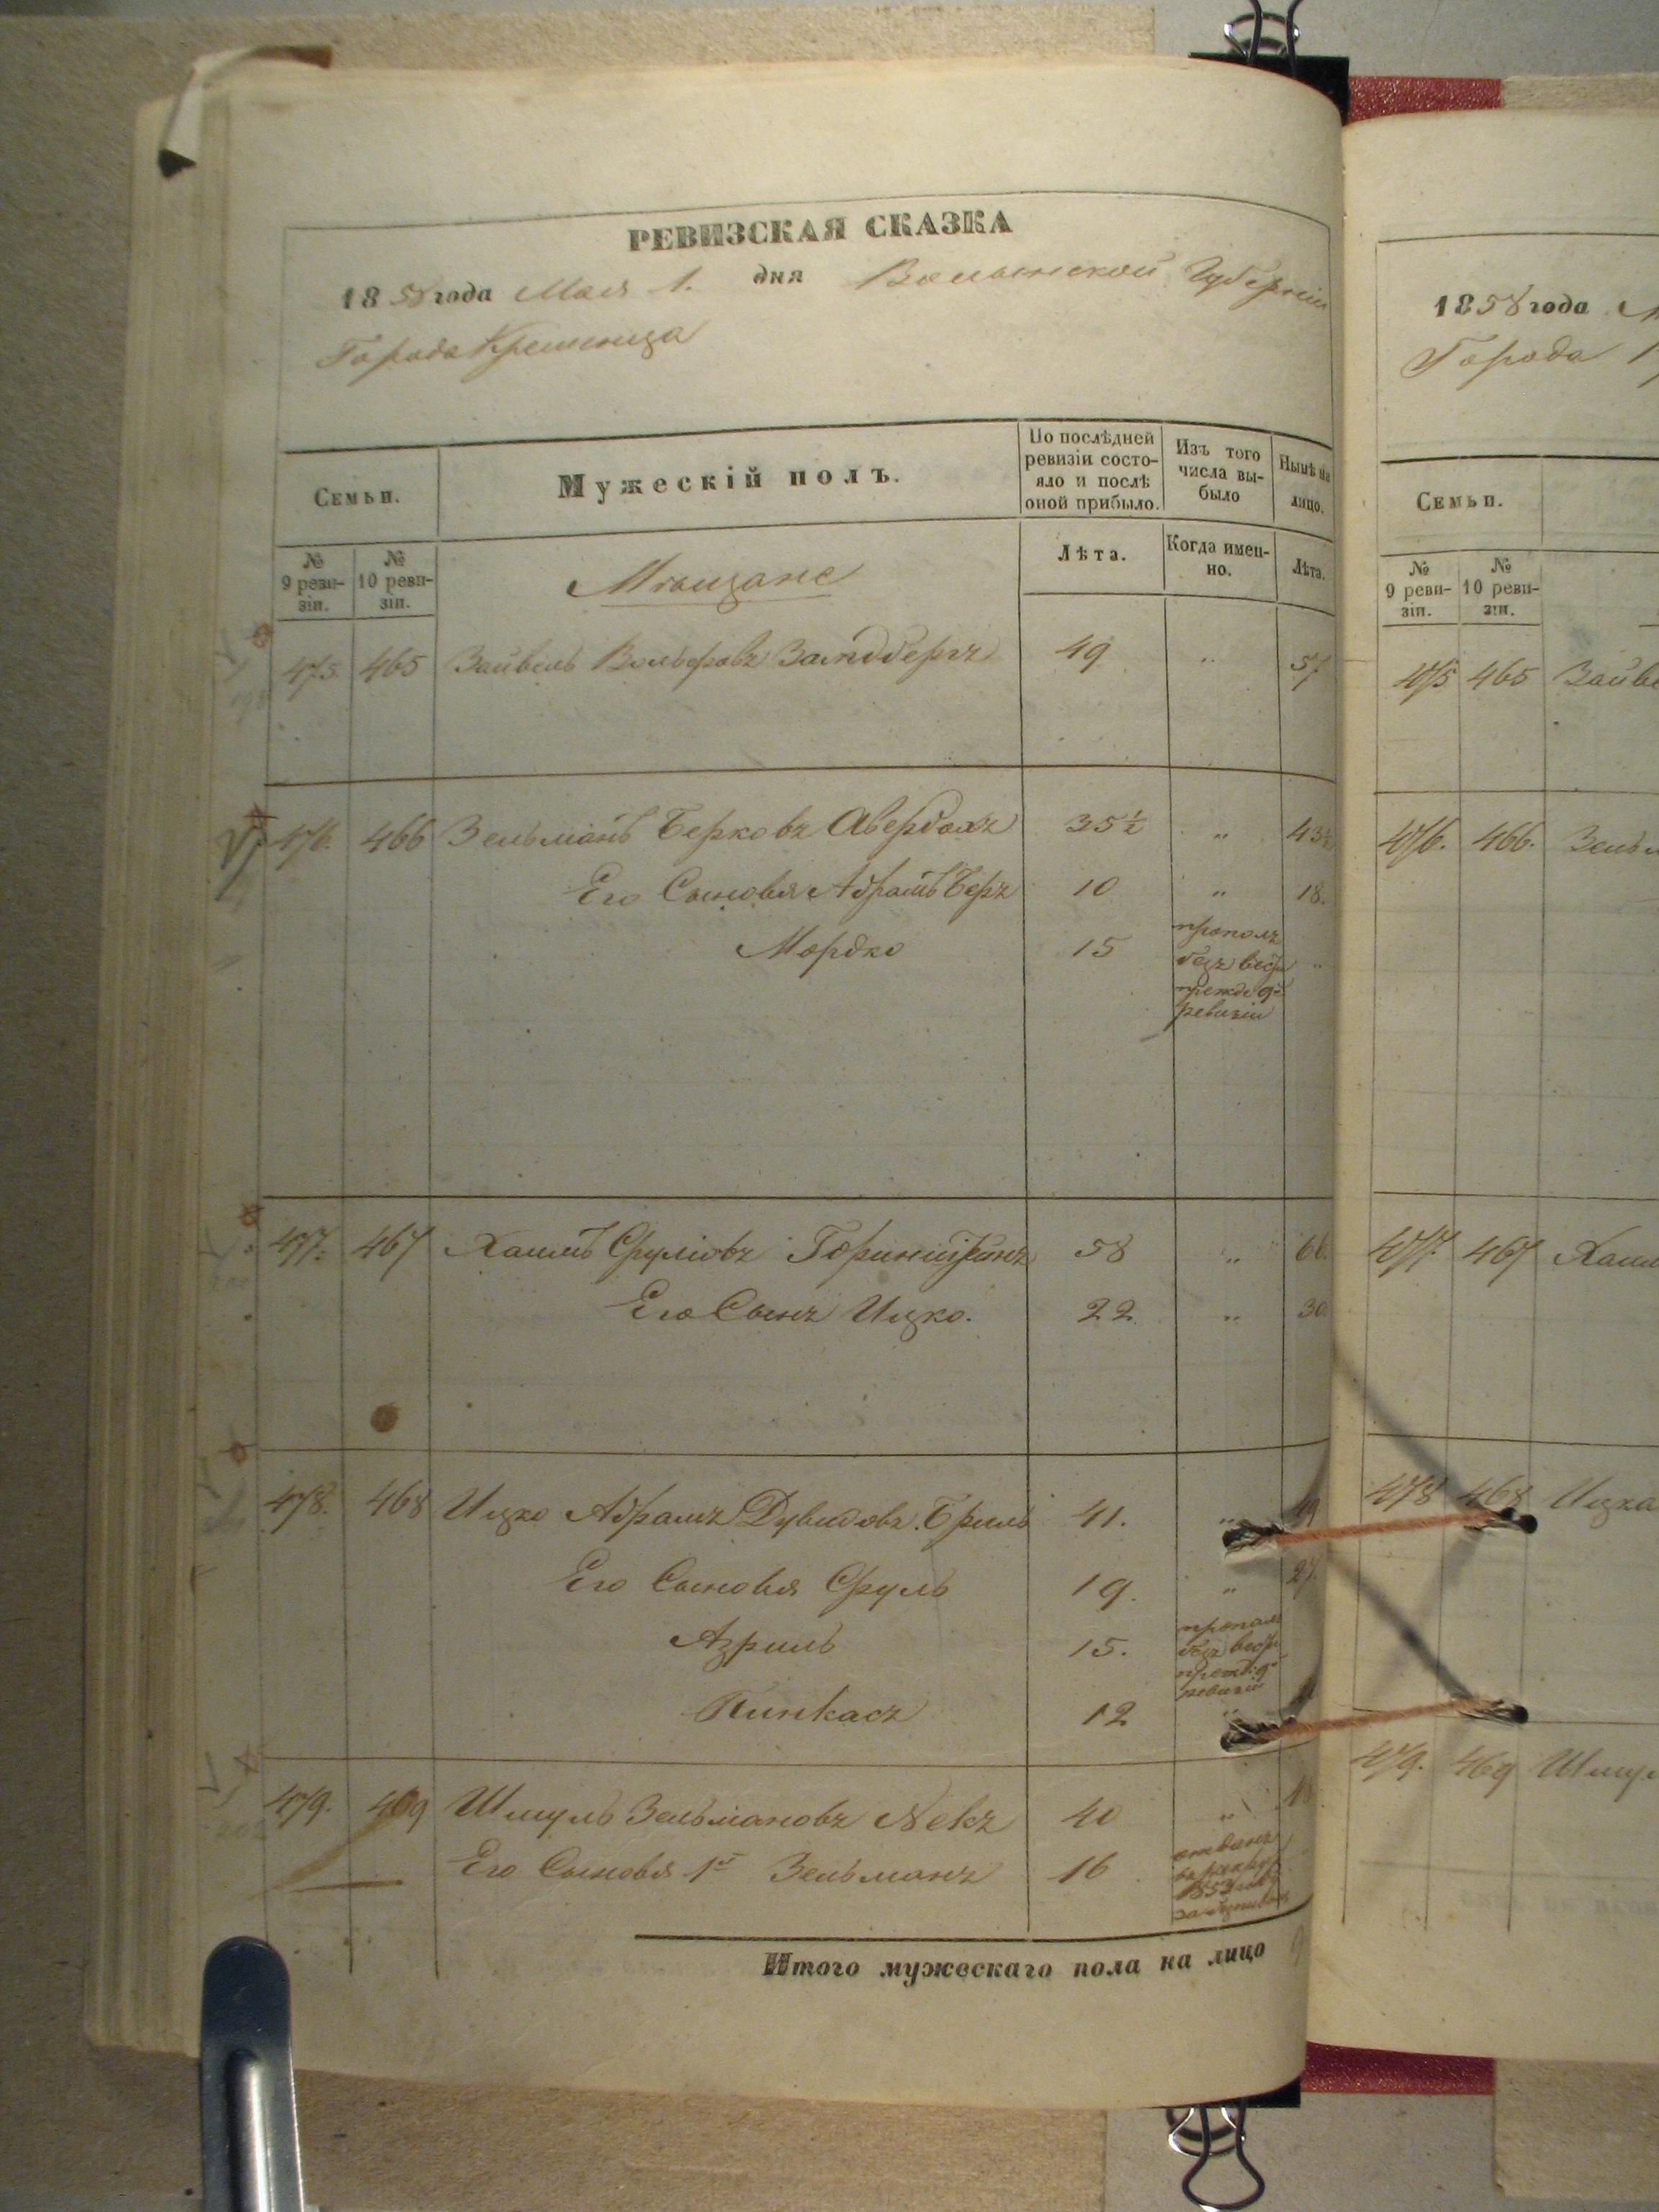 РЕВИЗСКАЯ СКАЗКА
1858 года Мая 1. дня Волынской Губерніи
Города Кременца
Семьи. Мужескій полъ. По послѣдней ревизіи состояло и послѣ оной прибыло. Изъ того числа выбыло Нынѣ на лицо.
№ 9 ревизіи. № 10 ревизіи. Мѣщане Лѣта. Когда именно. Лѣта.
475 465 Зайвель Вольфовъ 49 " 57
476. 466 Зельманъ Берковъ Авербахъ 35½ " 43½
Его Сыновья Абрамъ Беръ 10 " 18.
Мордко 15 пропалъ "
безъ вести
прежде 9й
ревизіи
477. 467 Хаимъ Сруліовъ 58 " 66
Его Сынъ Ицко. 22 " 30.
478. 468 Ицко Абрамъ Дувидовъ Бриль 41. " 49
Его Сыновья Сруль 19. " 27.
Азриль 15. пропалъ
безъ вести
прежде 9й
ревизіи
Пинкасъ 12 "
479. 469 Шмуль Зельмановъ 40 "
Его Сыновья 1й Зельманъ 16 отданъ
въ рекруты
1853 года
Итого мужескаго пола на лицо 9
1858 года
Города
Семьи.
№ 9 ревизіи. № 10 ревизіи.
475 465 Зайве
476. 466. Зельм
477. 467 Хаим
478 468 Ицка
479. 469 Шмул